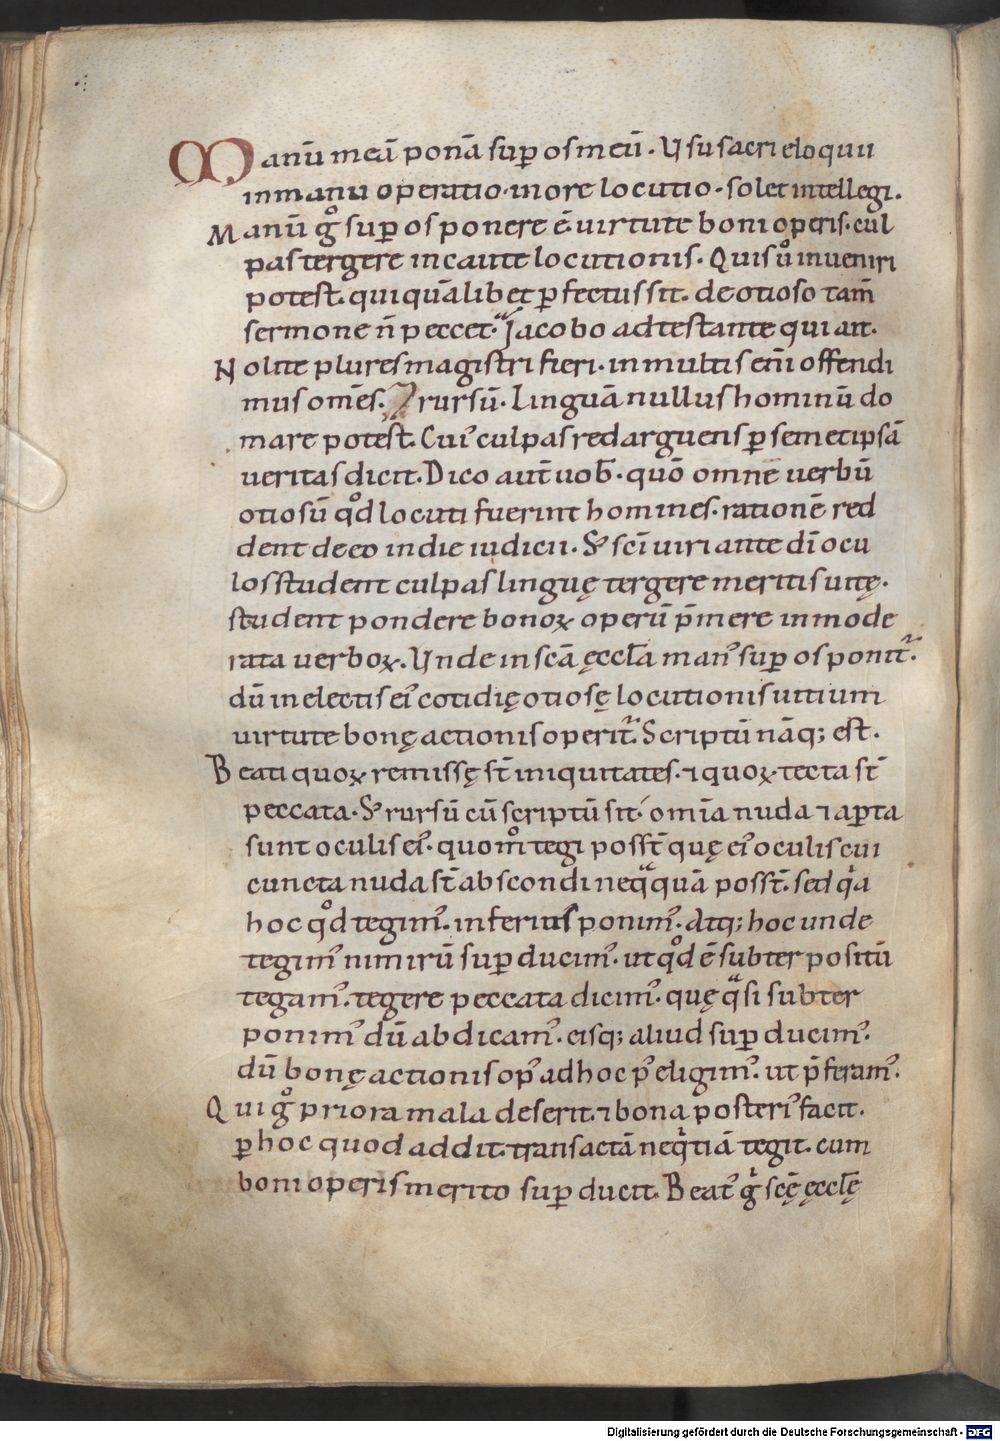 Manū meā ponā suꝑ os meū. Usu sacri eloquii
in manu operatio. in ore locutio. solet intellegi.
Manū gͦ suꝑ os ponere ē. uirtute boni operis. cul
pas tergere incaute locutionis. Quis uͦ inueniri
potest. qui quālibet ꝑfectus sit. de otioso tam̄
sermone n̄ peccet. Jacobo adtestante qui ait.
Nolite plures magistri fieri. in multis eni̅ offendi
mus om̄es. Et rursū. Linguā nullus hominū do
mare potest. Cui᾿ culpas redarguens ꝑ semetipsā
ueritas dicit. Dico aut̄ uob̄. quō omne uerbū
otiosū qͦd locuti fuerint homines. rationē red
dent de eo in die iudicii. & sc̄i uiri ante dī ocu
los student culpas linguę tergere meriti suitę.
student pondere bonoꝝ operū p̄mere inmode
rata uerboꝝ. Unde in sc̄a ęccl̄a man᾿ suꝑ os ponit᷑.
dū in electis ei᾿ cotidię otiosę locutionis uitium
uirtute bonę actionis operit᷑. Scriptū nāq; est.
Beati quoꝝ remissę st̄ iniquitates. ⁊ quoꝝ tecta st̄
peccata. & rursū cū scriptū sit. om̄ia nuda ⁊ aꝑta
sunt oculis ei᾿. quom̊ tegi poss̄t quę ei᾿ oculis cui
cuncta nuda st̄ abscondi neqͣquā poss̄t. sed qͥa
hoc qͦd tegim᾿. inferius ponim᾿. Atq; hoc unde
tegim᾿ nimirū suꝑducim᾿. ut qͦd ē subter positū
tegam᾿. tegere peccata dicim᾿. quę qͣsi subter
ponim᾿ dū abdicam᾿. eisq; aliud suꝑducim᾿.
dū bonę actionis op᾿ ad hoc p᾿ eligim᾿. ut p̄feram᾿.
Qui gͦ priora mala deserit. ⁊ bona posteri᾿ facit.
ꝑ hoc quod addit. transactā neqͥtiā tegit. cum
boni operis merito suꝑducit. Beat᾿ gͥ sc̄ę ęccl̄ę
Digitalisierung gefördert durch die Deutsche Forschungsgemeinschaft - DFG